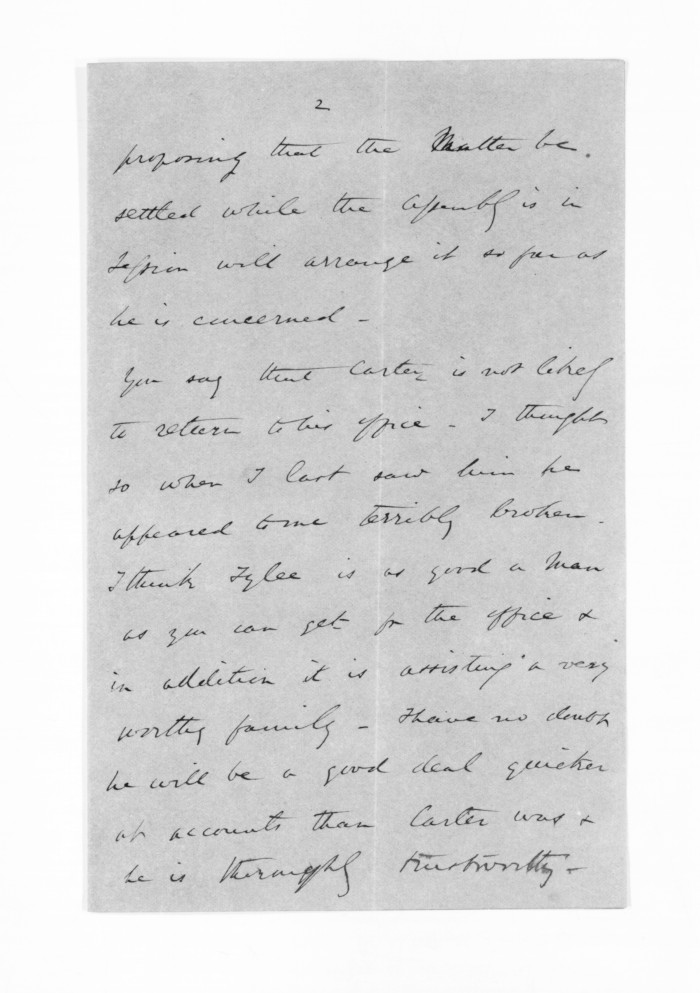 2
proposing that the Matter be
settled while the Assembly is in
Session will arrange it so far as
he is concerned –
You say that Carter is not likely
to return to his office – I thought
so when I last saw him he
appeared to me terribly broken –
I think Tylee is as good a man
as you can get for the office &
in addition it is assisting a very
worthy family – I have no doubt
he will be a good deal quicker
at accounts than Carter was &
he is thoroughly trustworthy –